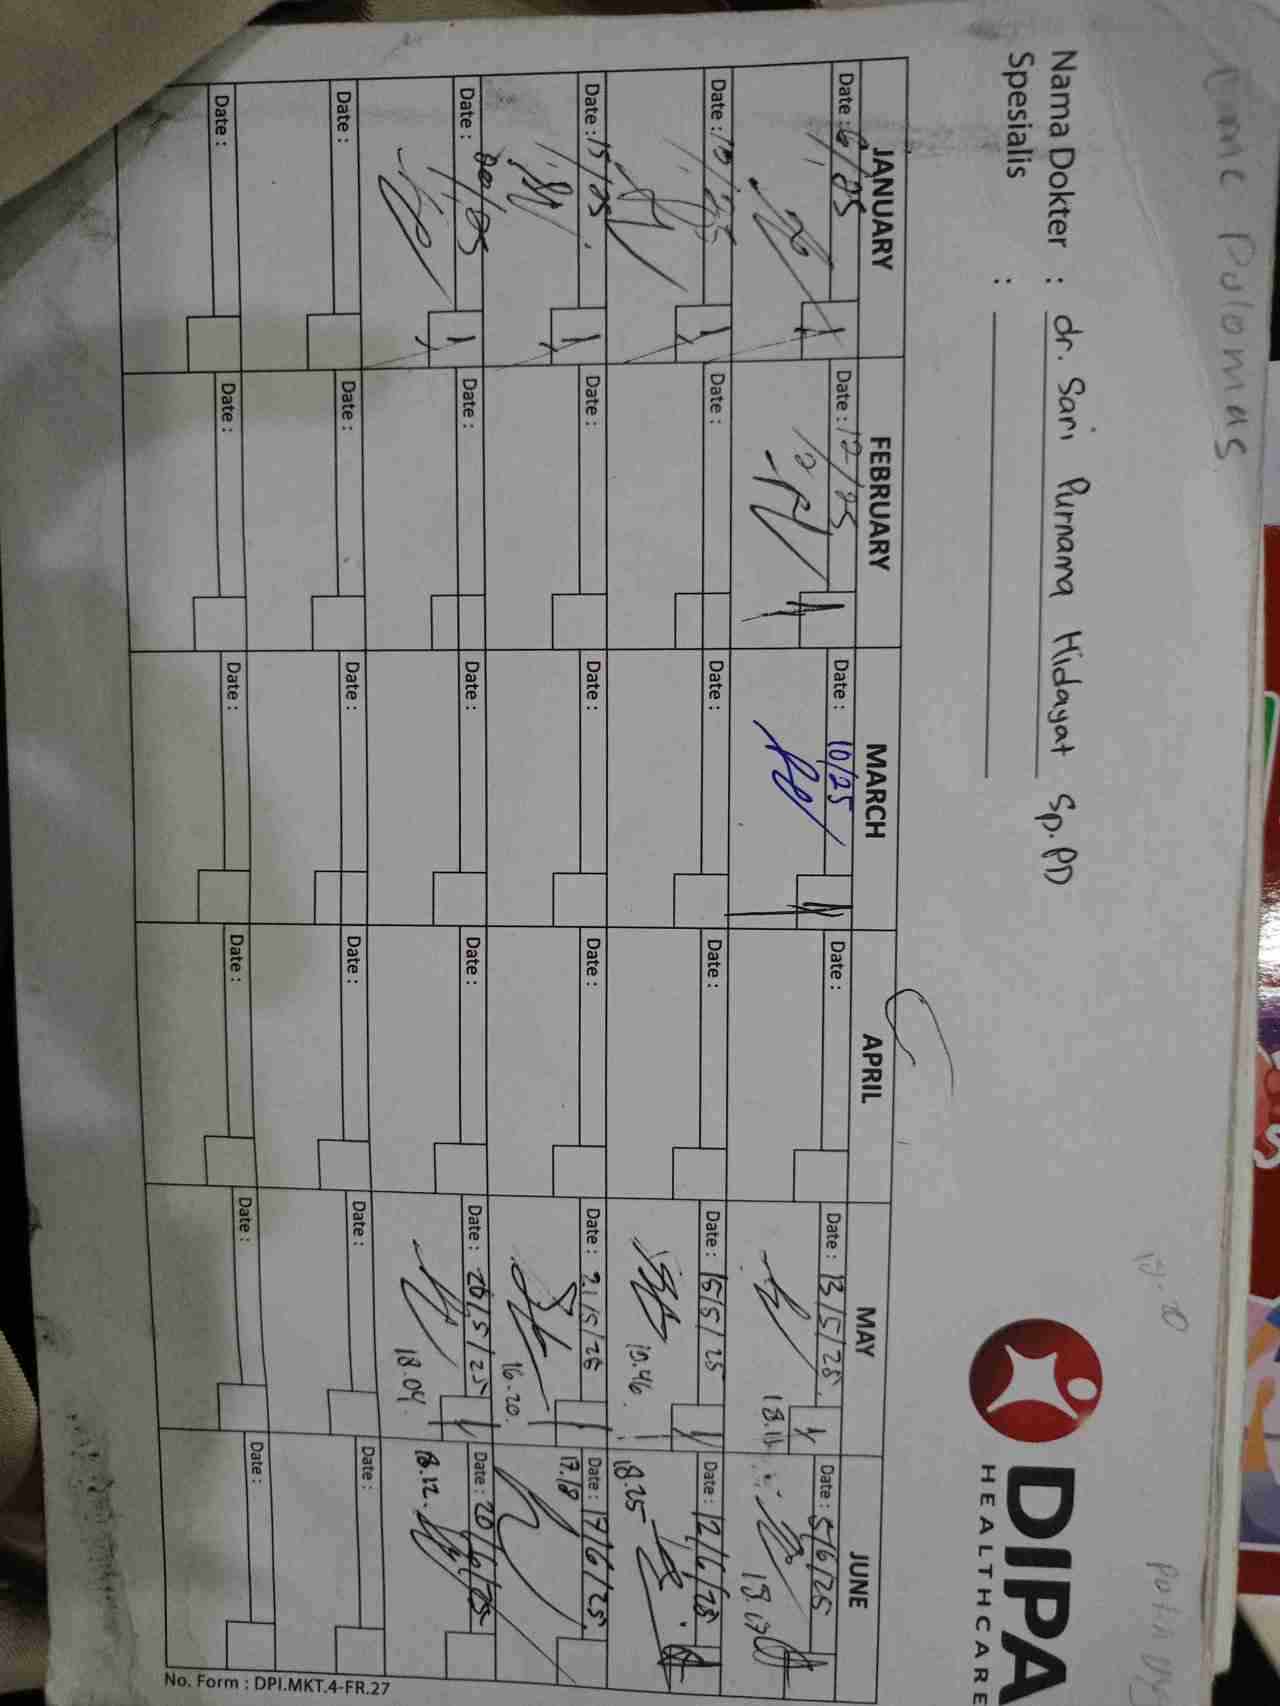 DIPA
HEALTHCARE
Nama Dokter : dr. Sari Purnama Hidayat Sp.PD
Spesialis :
JANUARY FEBRUARY MARCH APRIL MAY JUNE
Date : 6/25 Date : 12/25 Date : 10/25 Date : Date : 13/5/25 Date : 5/6/25
Date : Date : Date : Date : Date : 15/5/25 Date : 12/6/25
10.46 18.25
Date : 15/25 Date : Date : Date : Date : 21/5/25 Date : 17/6/25
16.20 17.18
Date : Date : Date : Date : Date : 20/5/25 Date : 20/6/25
18.04 18.12
Date : Date : Date : Date : Date : Date :
Date : Date : Date : Date : Date : Date :
No. Form : DPI.MKT.4-FR.27